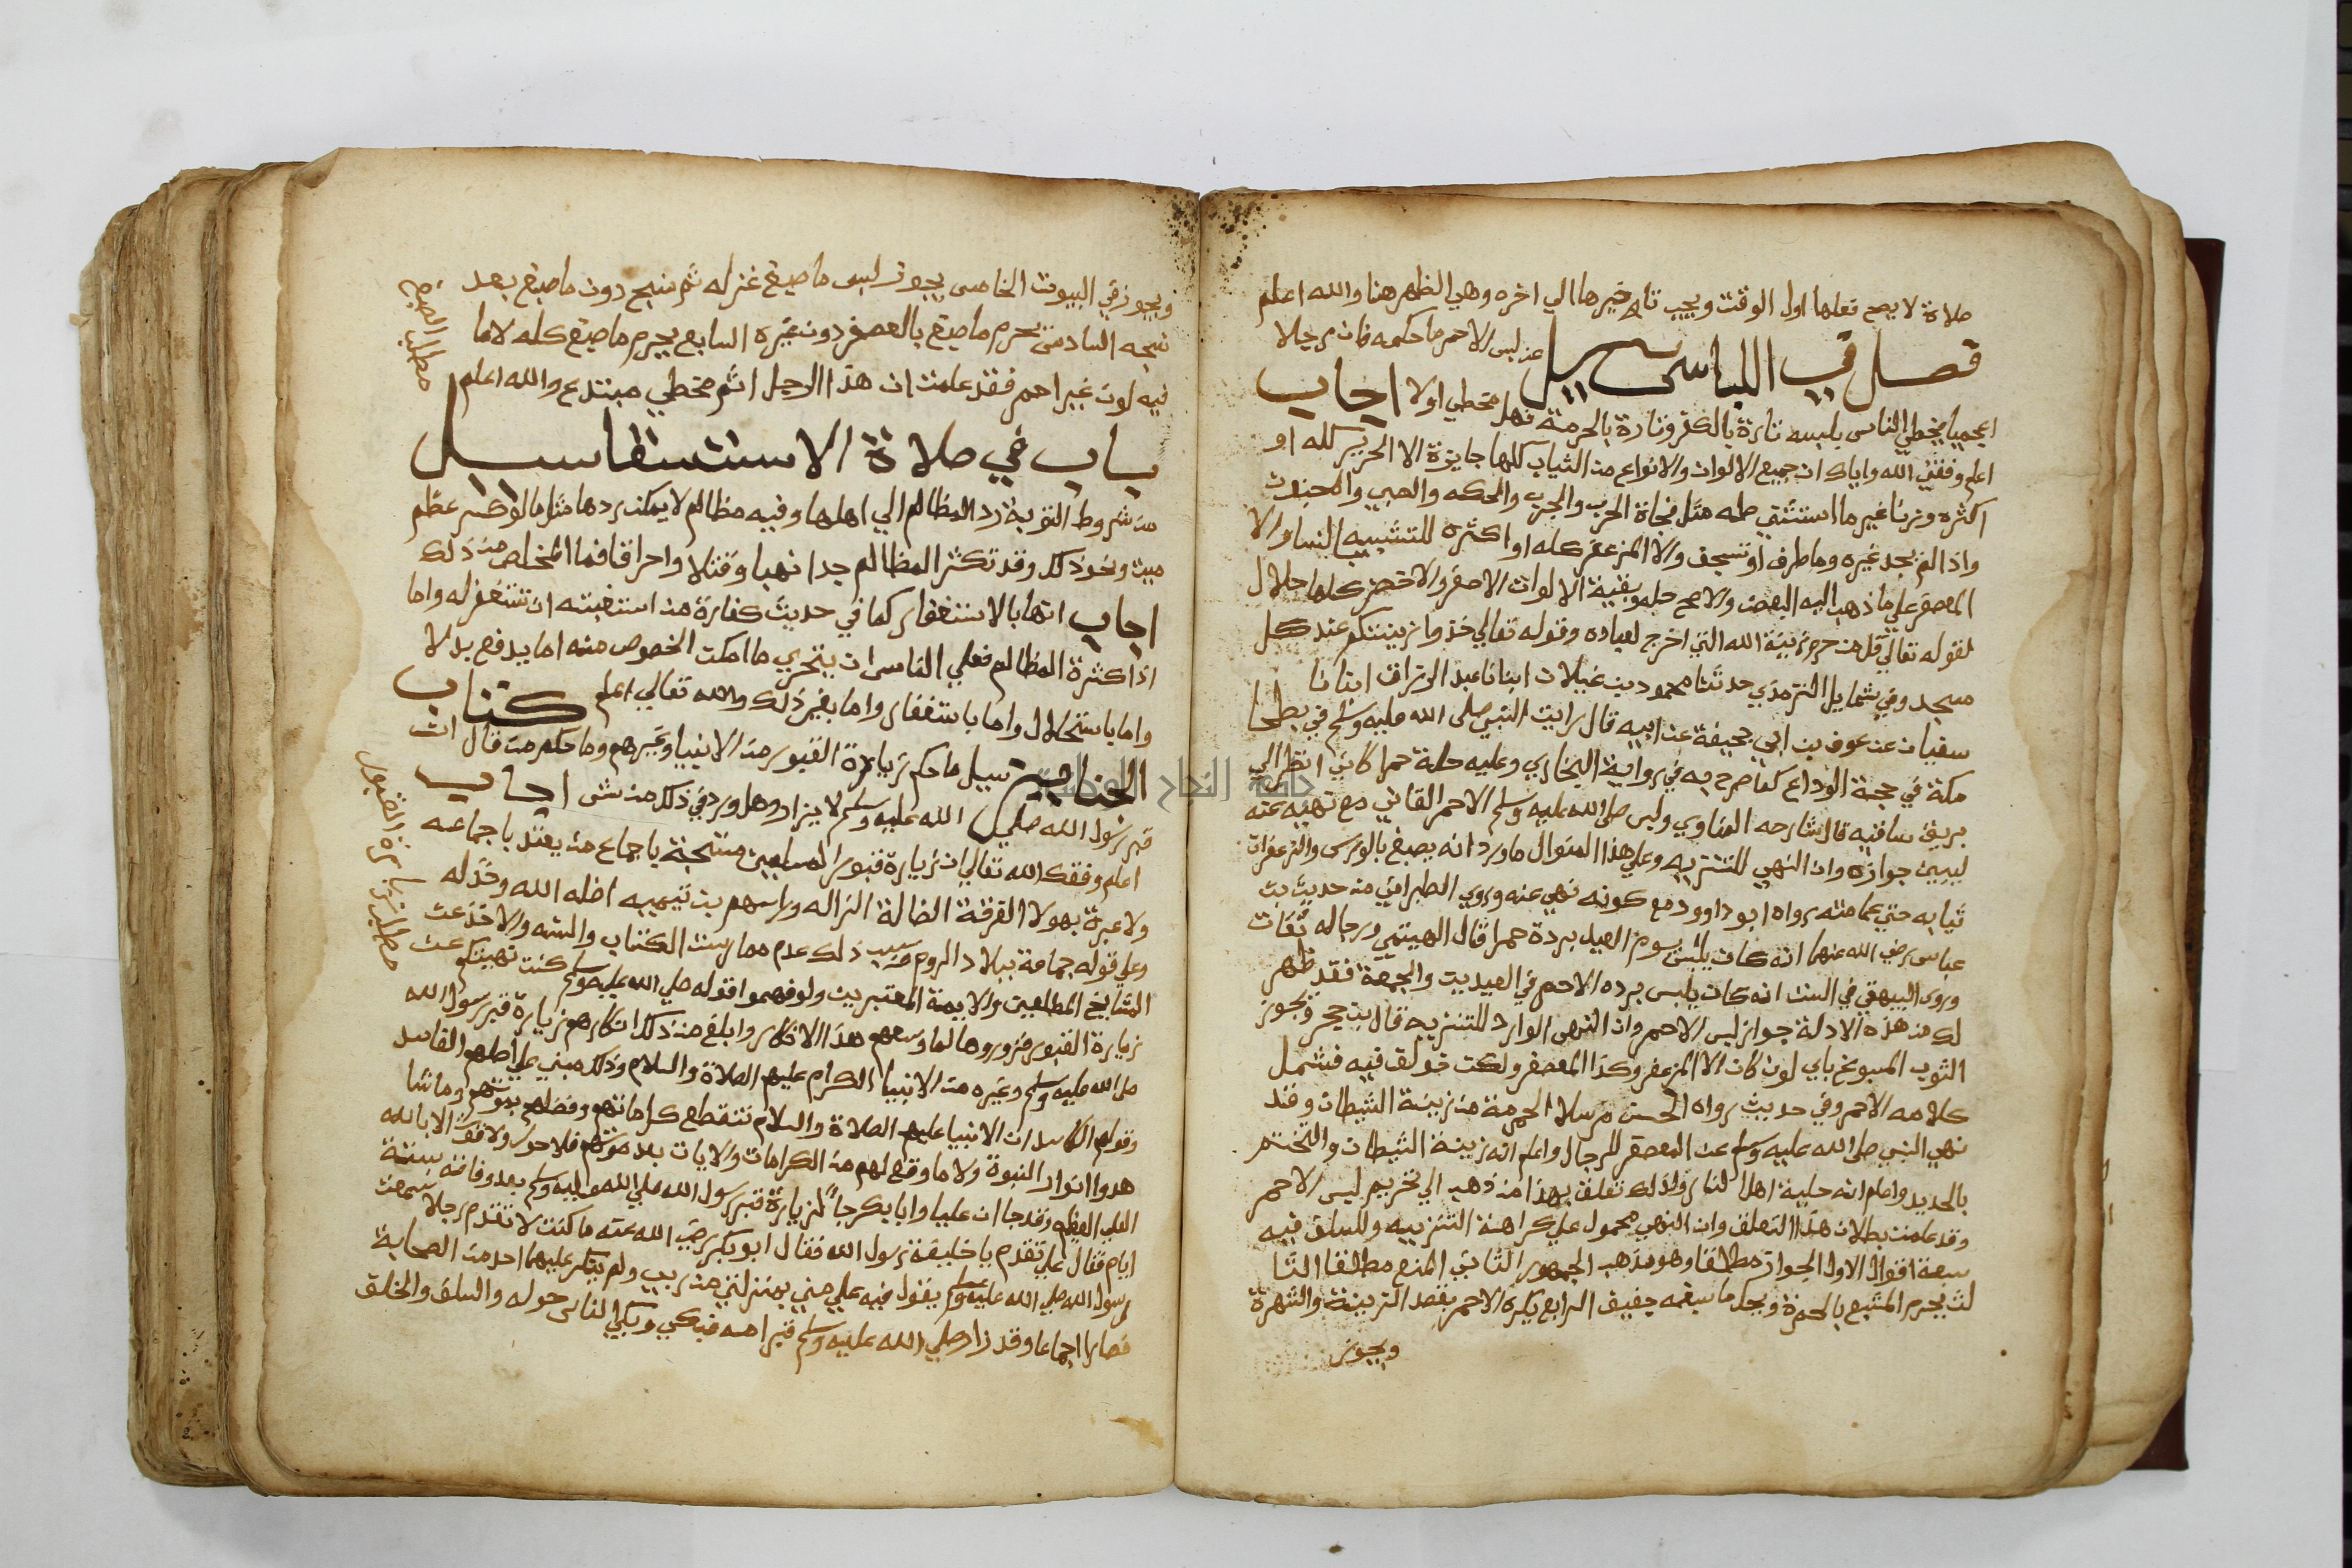 صلاة لا يصح فعلها اول الوقت ويجب تاخيرها الي اخره وهي الظهر هنا والله اعلم
فصل في اللباس سيل عن لبس الاحمر ما حكمه فان رجلا
اعجميا يخطي الناس بلبسه تارة بالكفر وتارة بالحرمة فهل مخطي او لا اجاب
اعلم وفقني الله واياك ان جميع الالوان والانواع من الثياب كلها جايزة الا الحرير كله او
اكثره وزنا غير ما استثني حله مثل فجاة الحرب والجرب والحكه والصبي والمجنون
واذا لم يجد غيره وما طرف او سجف والا المزعفر كله او اكثره للتشبيه بالنسا والا
المعصفر علي ما ذهب اليه البعض والاصح حله وبقية الالوان الاصفر والاخضر كلها حلال
لقوله تعالي قل من حرم زينة الله التي اخرج لعباده وقوله تعالي خذوا زينتكم عند كل
مسجد وفي شمايل الترمذي حدثنا محمود بن غيلان انبانا عبد الرزاق انبانا
سفيان عن عوف بن ابي جحيفة عن ابيه قال رايت النبي صلى الله عليه وسلم في بطحا
مكة في حجة الوداع كما صرح به في رواية البخاري وعليه حلة حمرا كاني انظر الي
بريق ساقيه قال شارحه المناوي ولبس صلى الله عليه وسلم الاحمر القاني مع نهيه عنه
ليبين جوازه وان النهي للتنزيه وعلي هذا المنوال ما ورد انه يصبغ بالورس والزعفران
ثيابه حتي عمامته رواه ابو داوود مع كونه نهي عنه وروي الطبراني من حديث بن
عباس رضي الله عنهما انه كان يلبس يوم العيد بردة حمرا قال الهيتمي ورجاله ثقات
وروي البيهقي في السنن انه كان يلبس برده الاحمر في العيدين والجمعة فقد ظهر
لك من هذه الادلة جواز لبس الاحمر وان النهي الوارد للتنزيه قال بن حجر ويجوز
الثوب المصبوغ باي لون كان الا المزعفر وكذا المعصفر ولكن خولف فيه فشمل
كلامه الاحمر وفي حديث رواه الحسن مرسلا الحمرة من زينة الشيطان وقد
نهي النبي صلى الله عليه وسلم عن المعصفر للرجال واعلم انه زينة الشيطان والتختم
بالحديد واعلم انه حلية اهل النار ولذلك تعلق بهذا من ذهب الي تحريم لبس الاحمر
وقد علمت بطلان هذا التعلق وان النهي محمول علي كراهة التنزيه وللسلف فيه
سبعة اقوال الاول الجواز مطلقا وهو مذهب الجمهور الثاني المنع مطلقا الثا
لث يحرم المشبع بالحمرة ويحل ما صبغه خفيف الرابع يكره الاحمر بقصد الزينة والشهرة
ويجوز
ويجوز في البيوت الخامس يجوز لبس ما صبغ غزله ثم نسج دون ما صبغ بعد
نسجه السادس يحرم ما صبغ بالعصفر دون غيره السابع يحرم ما صبغ كله لا ما
فيه لون غير احمر فقد علمت ان هذا الرجل اثم مخطي مبتدع والله اعلم
باب في صلاة الاستسقا سيل
من شروط التوبة رد المظالم الي اهلها وفيه مظالم لا يمكن ردها مثل ما لو كسر عظم
ميت ونحو ذلك وقد تكثر المظالم جدا نهبا وقتلا واحراقا فما المخلص من ذلك
اجاب انها بالاستغفار كما في حديث كفارة من استغبته ان تستغفر له واما
اذا كثرة المظالم فعلي الناس ان يتحري ما امكن الخصوص منه اما يدفع بدلا
واما باستحلال واما باستغفار واما بغير ذلك والله تعالي اعلم كتاب
الجنايز سيل ما حكم زيارة القبور من الانبيا وغيرهم وما حكم من قال ان
قبر رسول الله صلي الله عليه وسلم لا يزار وهل ورد في ذلك من شي اجاب
اعلم وفقك الله تعالي ان زيارة قبور المسلمين مستحبة باجماع من يعتد باجماعه
ولا عبرة بهولا الفرقة الضالة النزاله وراسهم بن تيميه اضله الله وخذله
وعلي قوله جماعة ببلاد الروم وسبب ذلك عدم ممارست الكتاب والسنه والاخذ عن
المشايخ المطلعين والايمة المعتبرين ولو فهموا قوله صلي الله عليه وسلم كنت نهيتكم عن
زيارة القبور فزوروها لما وسعهم هذا الانكار وابلغ من ذلك انكارهم زيارة قبر رسول الله
صلى الله عليه وسلم وغيره من الانبيا الكرام عليهم الصلاة والسلام وذلك مبني علي اصلهم الفاسد
وقولهم الكاسد ان الانبيا عليهم الصلاة والسلام تنقطع كراماتهم وفضلهم بموتهم وما شا
هدوا انوار النبوة ولا ما وقع لهم من الكرامات والايات بعد موتهم فلا حول ولا قوة الا بالله
العلي العظيم وقد جا ان عليا وابا بكر جا لزيارة قبر رسول الله صلي الله عليه وسلم بعد وفاته بستة
ايام فقال علي تقدم يا خليفة رسول الله فقال ابو بكر رضي الله عنه ما كنت لا تقدم رجلا سمعت
رسول الله صلي الله عليه وسلم يقول فيه علي مني بمنزلتي من ربي ولم ينكر عليهما احد من الصحابة
فصار اجماعا وقد زار صلي الله عليه وسلم قبر امه فبكي وبكي الناس حوله والسلف والخلف
مطلب الصبغ
مطلب زيارة القبور
جامعة النجاح الوطنية